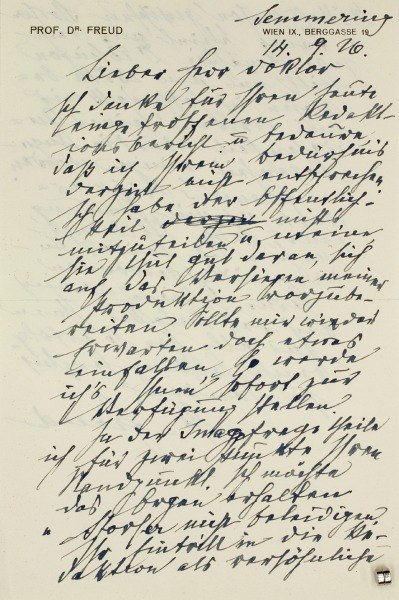 PROF. DR. FREUD
Semmering
WIEN IX., BERGGASSE 19
14. 9. 26.
Lieber Herr Doktor
Ich danke für Ihren heute
eingetroffenen Redakt-
ionsbericht u bedaure
daß ich Ihrem Bedürfnis
derzeit nicht entsprechen
Ich habe der Öffentlich-
keit nichts
mitzuteilen u meine
Sie thut gut daran, sich
auf das Versiegen meiner
Produktion vorzube-
reiten. Sollte mir wider
Erwarten doch etwas
einfallen so werde
ich's Ihnen sofort zur
Verfügung stellen
In der Imagofrage theile
ich für zwei Punkte Ihren
Standpunkt. Ich möchte
das Organ erhalten
u nicht beleidigen
Ihr Eintritt in die Re-
daktion als versöhnliche